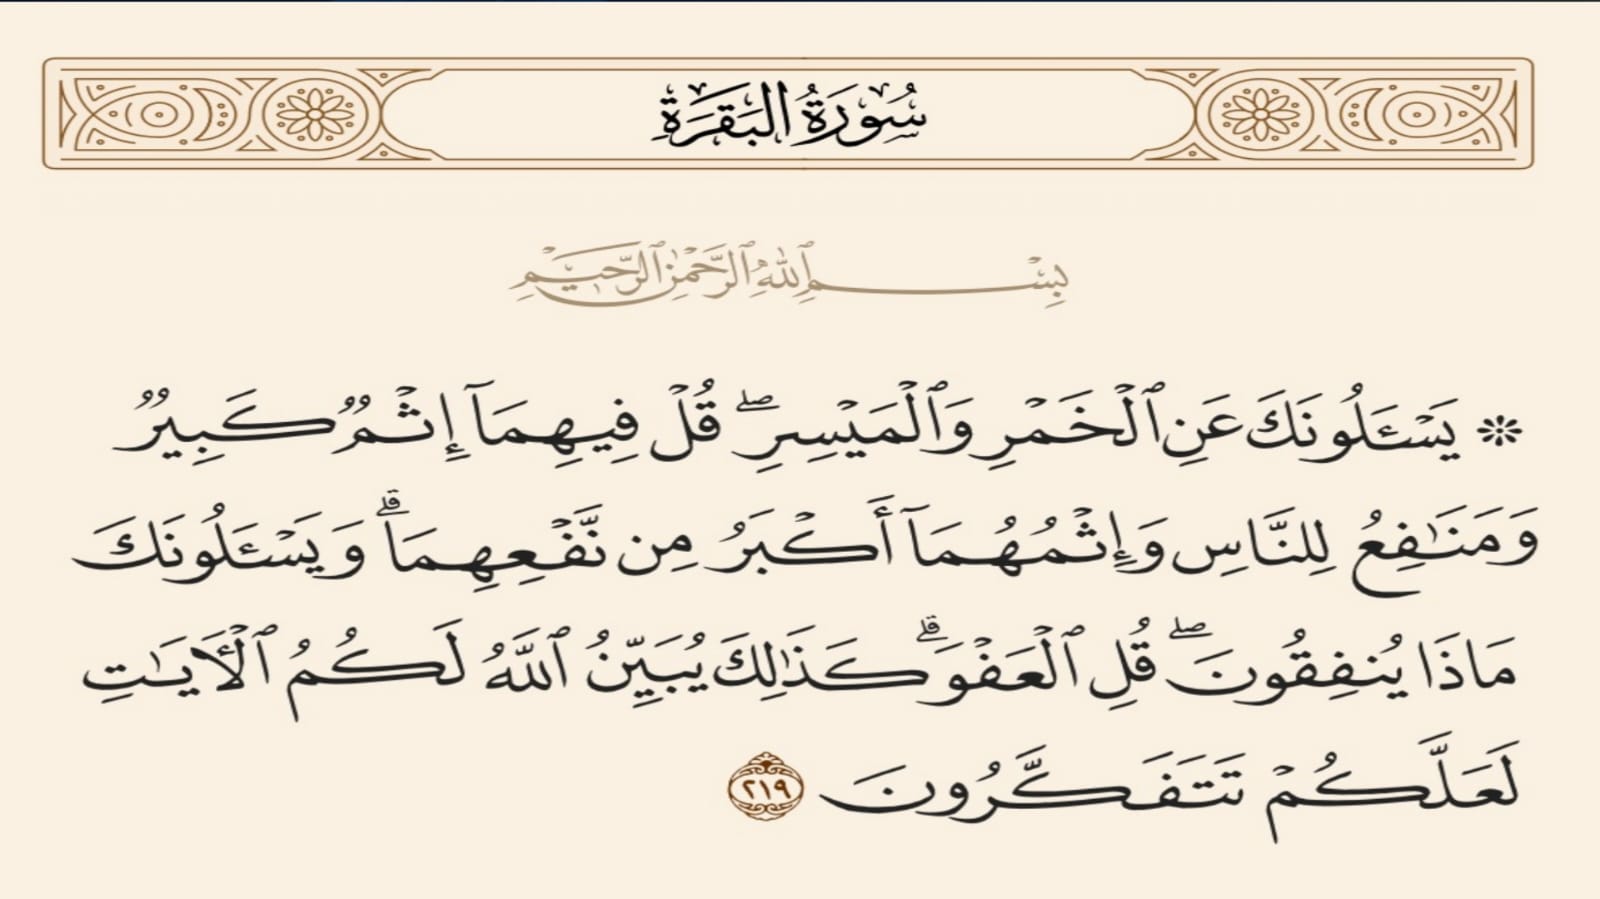 سُورَةُ البَقَرَةِ
بِسْمِ ٱللَّهِ ٱلرَّحْمَٰنِ ٱلرَّحِيمِ
۞ يَسْـَٔلُونَكَ عَنِ ٱلْخَمْرِ وَٱلْمَيْسِرِۖ قُلْ فِيهِمَآ إِثْمٌۭ كَبِيرٌۭ
وَمَنَـٰفِعُ لِلنَّاسِ وَإِثْمُهُمَآ أَكْبَرُ مِن نَّفْعِهِمَاۗ وَيَسْـَٔلُونَكَ
مَاذَا يُنفِقُونَۖ قُلِ ٱلْعَفْوَۗ كَذَٰلِكَ يُبَيِّنُ ٱللَّهُ لَكُمُ ٱلْـَٔايَـٰتِ
لَعَلَّكُمْ تَتَفَكَّرُونَ ٢١٩